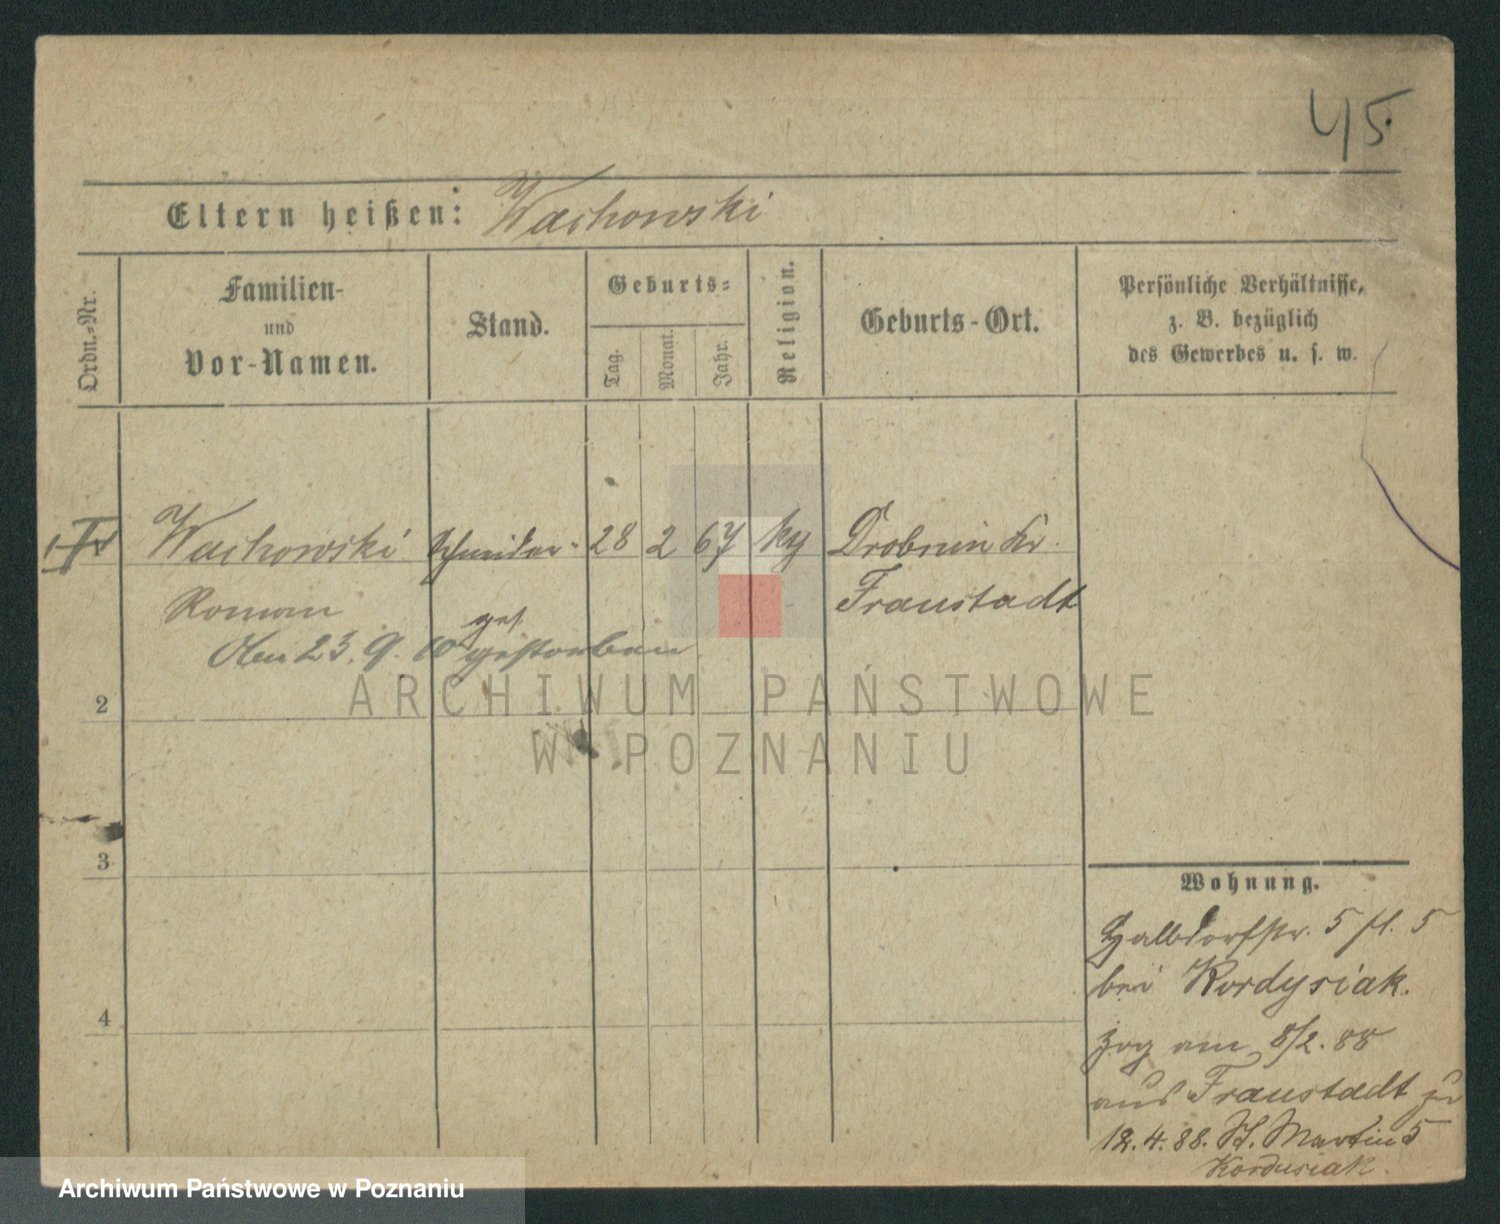 45
Eltern heißen: Wachowski
Ordn.=Nr.
Familien-
und
Vor-Namen.
Stand.
Geburts=
Tag.
Monat.
Jahr.
Religion.
Geburts-Ort.
Persönliche Verhältnisse,
z. B. bezüglich
des Gewerbes u. s. w.
Wachowski Schneider- 28 2 67 ky Drobnin Kr.
Roman Fraustadt
gest
Den 23. 9. 10 gestorben
2
ARCHIWUM PAŃSTWOWE
W POZNANIU
3
Wohnung.
Halbdorfstr. 5 fl. 5
bei Kordysiak.
4
zog am 8/2. 88
aus Fraustadt zu
12. 4. 88. St. Martin 5
Kordusiak.
Archiwum Państwowe w Poznaniu